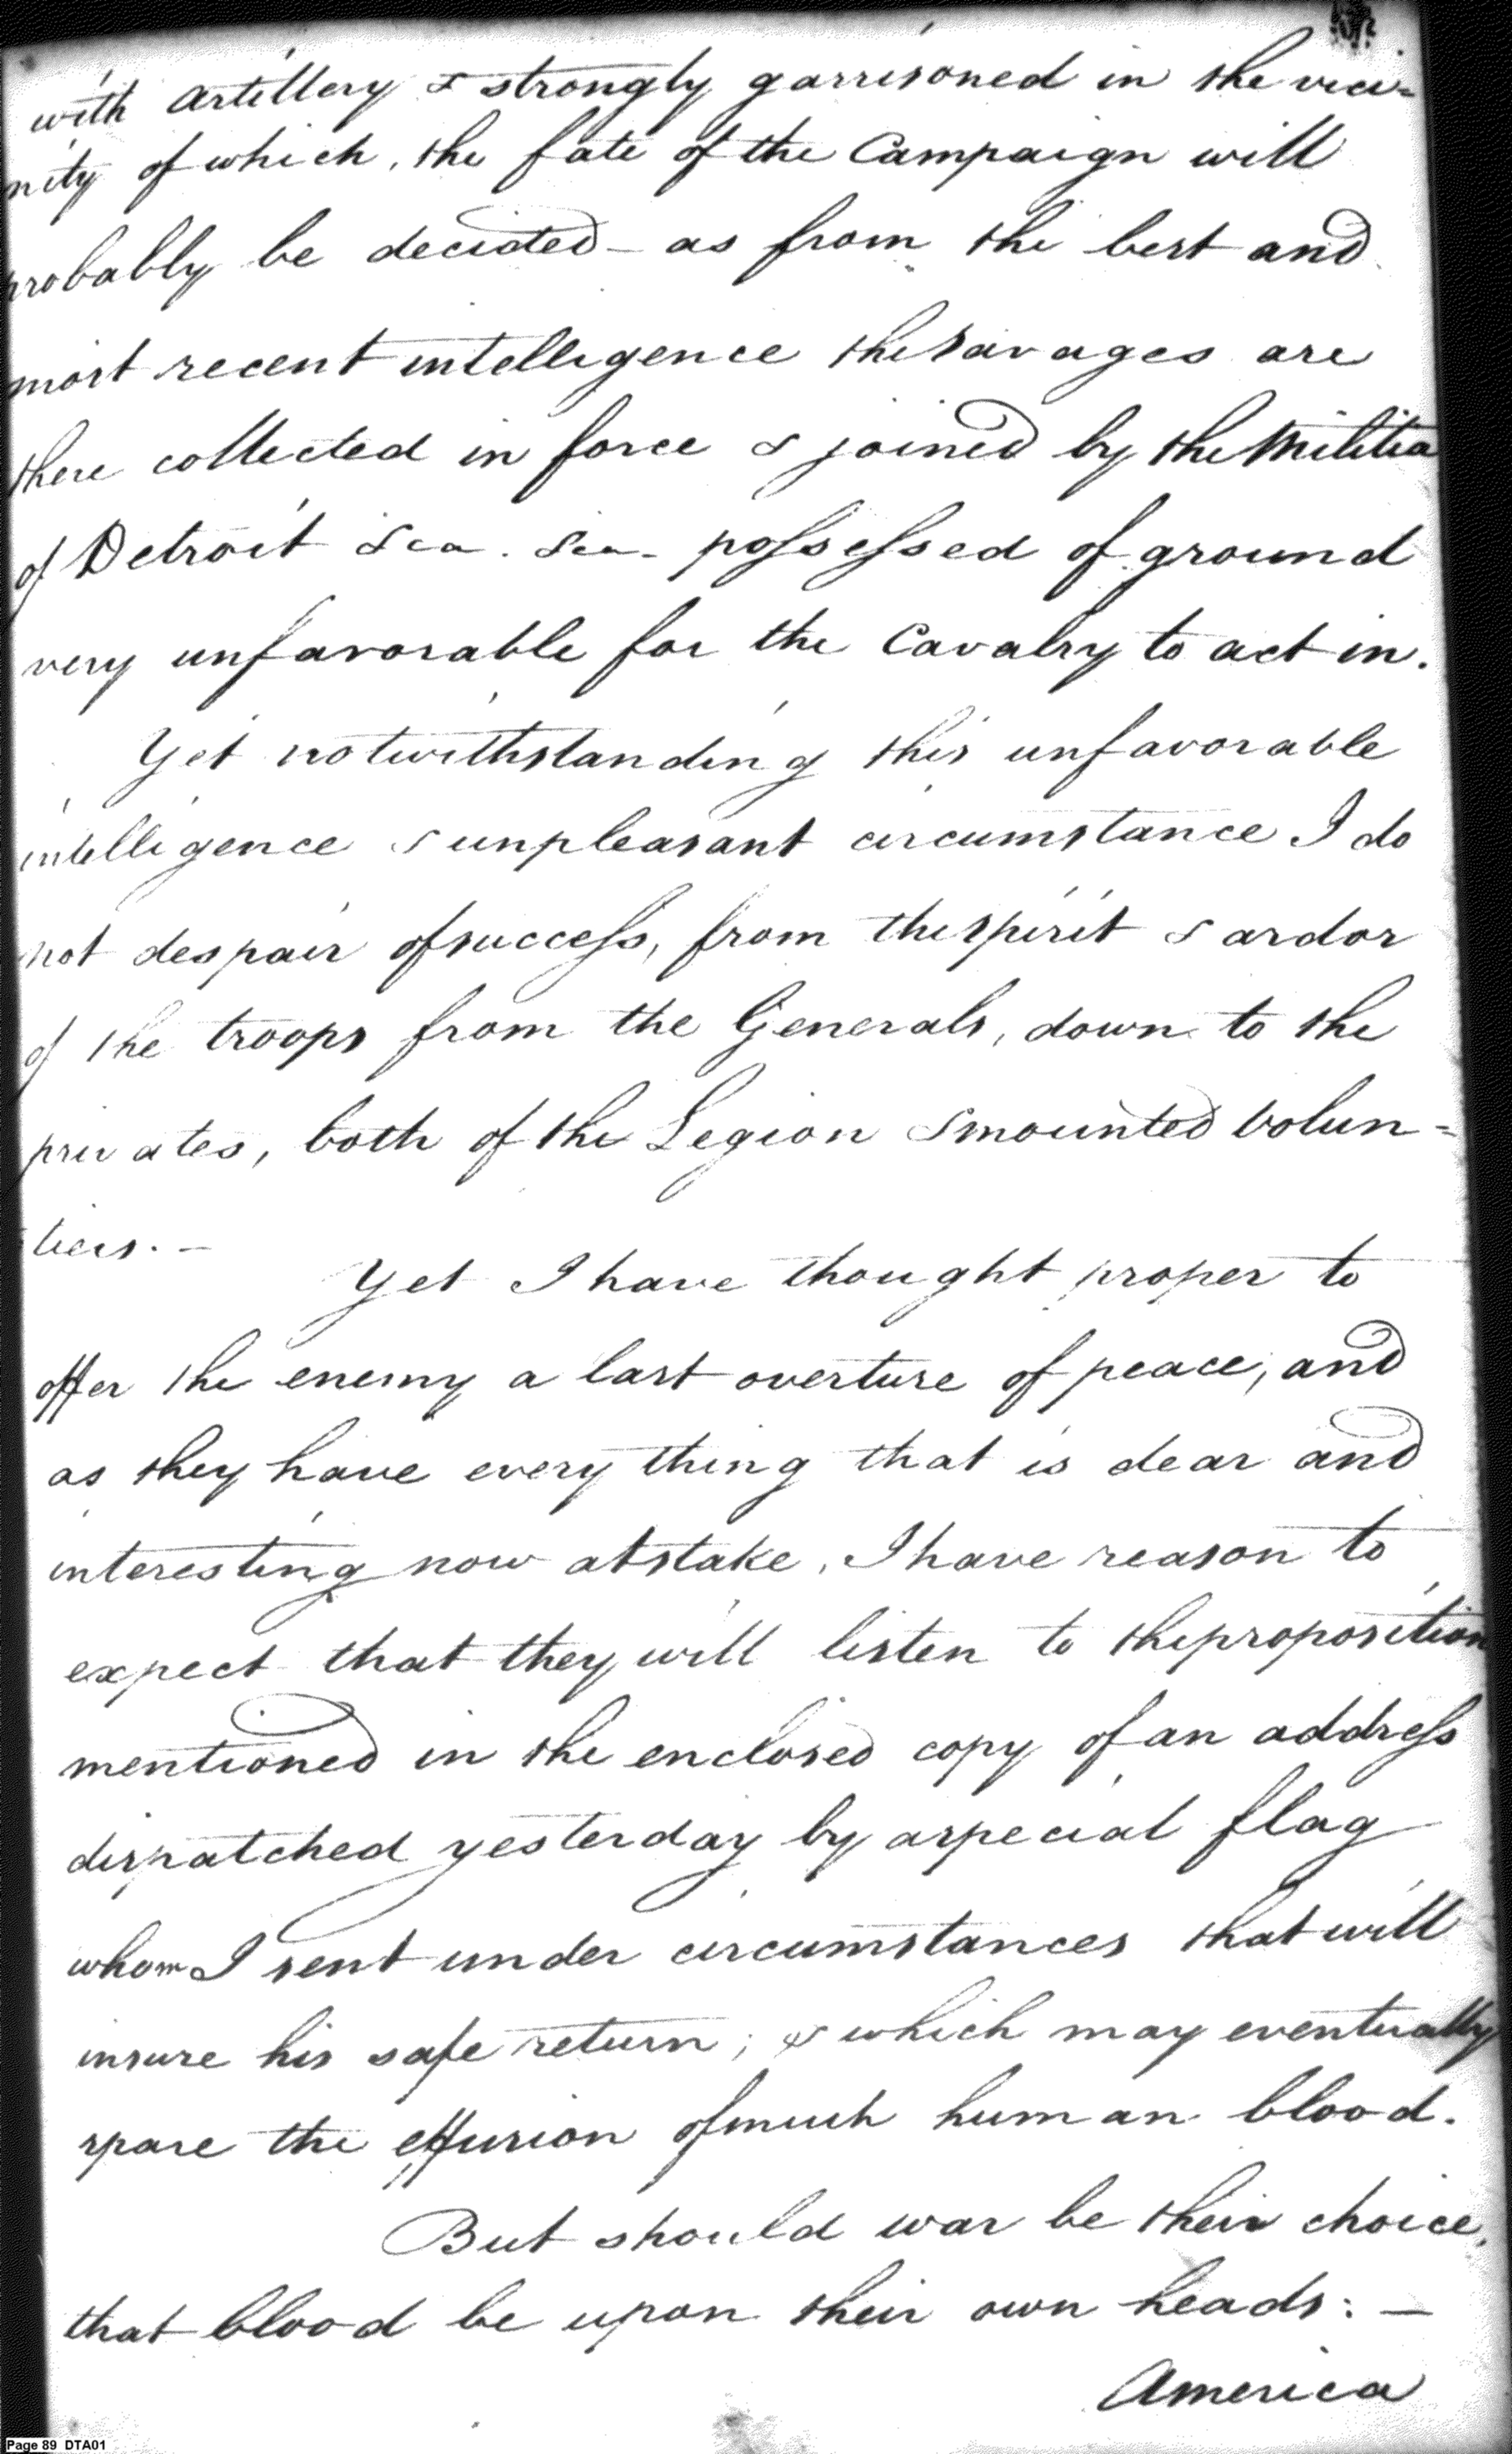 with artillery & strongly garrisoned in the vici=
nity of which, the fate of the Campaign will
probably be decided - as from the best and
most recent intelligence the Savages are
there collected in force & joined by the Militia
of Detroit &ca. &ca. possessed of ground
very unfavorable for the Cavalry to act in.
Yet notwithstanding this unfavorable
intelligence & unpleasant circumstance I do
not despair of success, from the spirit & ardor
of the troops from the Generals, down to the
privates, both of the Legion & mounted volun=
tiers. -
Yet I have thought proper to
offer the enemy a last overture of peace, and
as they have every thing that is dear and
interesting now at stake, I have reason to
expect that they will listen to the proposition
mentioned in the enclosed copy of an address
dispatched yesterday by a special flag
whom I sent under circumstances that will
insure his safe return; & which may eventually
spare the effusion of much human blood.
But should war be their choice,
that blood be upon their own heads: -
America
Page 89 DTA01